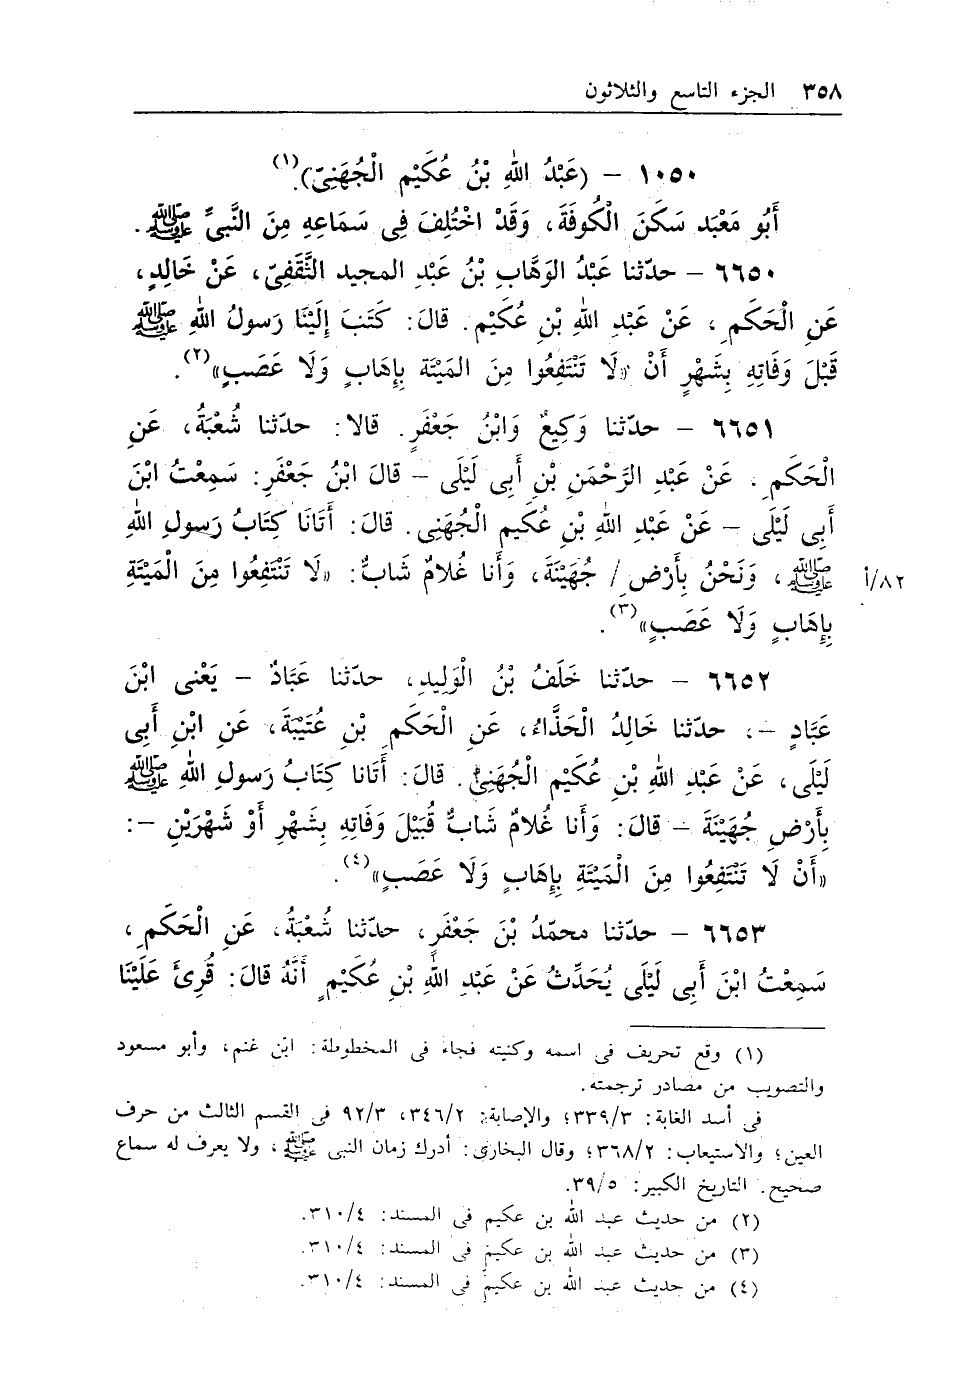 ٣٥٨ الجزء التاسع والثلاثون
١٠٥٠ – (عَبْدُ اللهِ بْنُ عُكَيْم الْجُهَنِيّ).(١)
أَبُو مَعْبَد سَكَنَ الْكُوفَةَ، وَقَدْ اخْتُلِفَ فِى سَمَاعِهِ مِنَ النَّبِيِّ ﷺ.
٦٦٥٠ – حدّثنا عَبْدُ الوَهَّاب بْنُ عَبْدِ المجيد الثَّقَفِيّ، عَنْ خَالِدٍ،
عَنِ الْحَكَمِ، عَنْ عَبْدِ اللهِ بْنِ عُكَيْم. قالَ: كَتَبَ إِلَيْنَا رَسولُ اللهِ ﷺ
قَبْلَ وَفَاتِهِ بِشَهْرٍ أَنْ «لَا تَنْتَفِعُوا مِنَ المَيْتَة بِإهَابٍ وَلَا عَصَبٍ»(٢).
٦٦٥١ – حدّثنا وَكِيعٌ وَابْنُ جَعْفَرٍ. قالا: حدّثنا شُعْبَةُ، عَنِ
الْحَكَمِ. عَنْ عَبْدِ الرَّحْمَنِ بْنِ أَبِى لَيْلَى – قالَ ابْنُ جَعْفَرٍ: سَمِعْتُ ابْنَ
أَبِى لَيْلَى – عَنْ عَبْدِ اللهِ بْنِ عُكَيم الْجُهَنِى. قالَ: أَتَانَا كِتَابُ رَسولِ اللهِ
ﷺ، وَنَحْنُ بِأَرْضِ / جُهَيْنَةَ، وَأَنا غُلامٌ شَابٌّ: «لَا تَنْتَفِعُوا مِنَ الْمَيْتَةِ ٨٢/أ
بِإِهَابٍ وَلَا عَصَبٍ»(٣).
٦٦٥٢ – حدّثنا خَلَفُ بْنُ الْوَلِيدِ، حدّثنا عَبَّادٌ – يَعْنى ابْنَ
عَبَّادٍ –، حدّثنا خَالِدُ الْحَذَّاءُ، عَنِ الْحَكَمِ بْنِ عُتَيْبَةَ، عَنِ ابْنِ أَبِى
لَيْلَى، عَنْ عَبْدِ اللهِ بْنِ عُكَيْم الْجُهَنِىِّ. قالَ: أَتَانا كِتَابُ رَسولِ اللهِ ﷺ
بِأَرْضِ جُهَيْنَةَ – قالَ: وَأَنا غُلامٌ شَابٌّ قُبَيْلَ وَفَاتِهِ بِشَهْرٍ أَوْ شَهْرَيْنِ –:
«أَنْ لَا تَنْتَفِعُوا مِنَ الْمَيْتَةِ بِإِهَابٍ وَلَا عَصَبٍ»(٤).
٦٦٥٣ – حدّثنا محمّدُ بْنَ جَعْفَرٍ، حدّثنا شُعْبَةُ، عَنِ الْحَكَمِ،
سَمِعْتُ ابْنَ أَبِى لَيْلَى يُحَدِّثُ عَنْ عَبْدِ اللهِ بْنِ عُكَيْمٍ أَنَّهُ قالَ: قُرِئَ عَلَيْنَا
(١) وقع تحريف فى اسمه وكنيته فجاء فى المخطوطة: ابن غنم، وأبو مسعود
والتصويب من مصادر ترجمته.
فى أسد الغابة: ٣٣٩/٣؛ والإصابة: ٣٤٦/٢، ٩٢/٣ فى القسم الثالث من حرف
العين؛ والاستيعاب: ٣٦٨/٢؛ وقال البخارى: أدرك زمان النبى ﷺ، ولا يعرف له سماع
صحيح. التاريخ الكبير: ٣٩/٥.
(٢) من حديث عبد الله بن عكيم فى المسند: ٣١٠/٤.
(٣) من حديث عبد الله بن عكيم فى المسند: ٣١٠/٤.
(٤) من حديث عبد الله بن عكيم فى المسند: ٣١٠/٤.